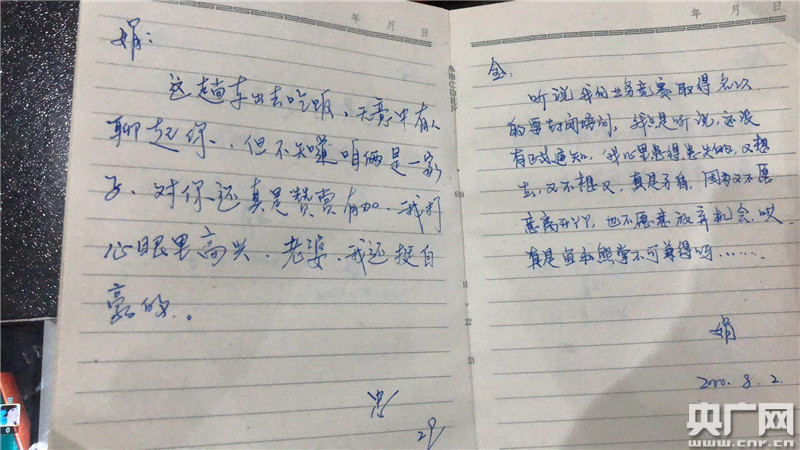 年 月 日
娟:
这趟车出去吃饭,无意中有人
聊起你、但不知道咱俩是一家
子、对你还真是赞赏有加、我打
心眼里高兴、老婆、我还挺自
豪的、。
29
年 月 日
ABCDEF
11
22
33
听说我的业务竞赛取得名次
的要封闭培训,我只是听说,还没
有正式通知,我心里患得患失的,又想
去,又不想又,真是矛盾,因为又不愿
意离开,也不愿意放弃机会.哎
真是鱼和熊掌不可兼得呀……
娟
2010. 8. 2.
央广网
www.cnr.cn